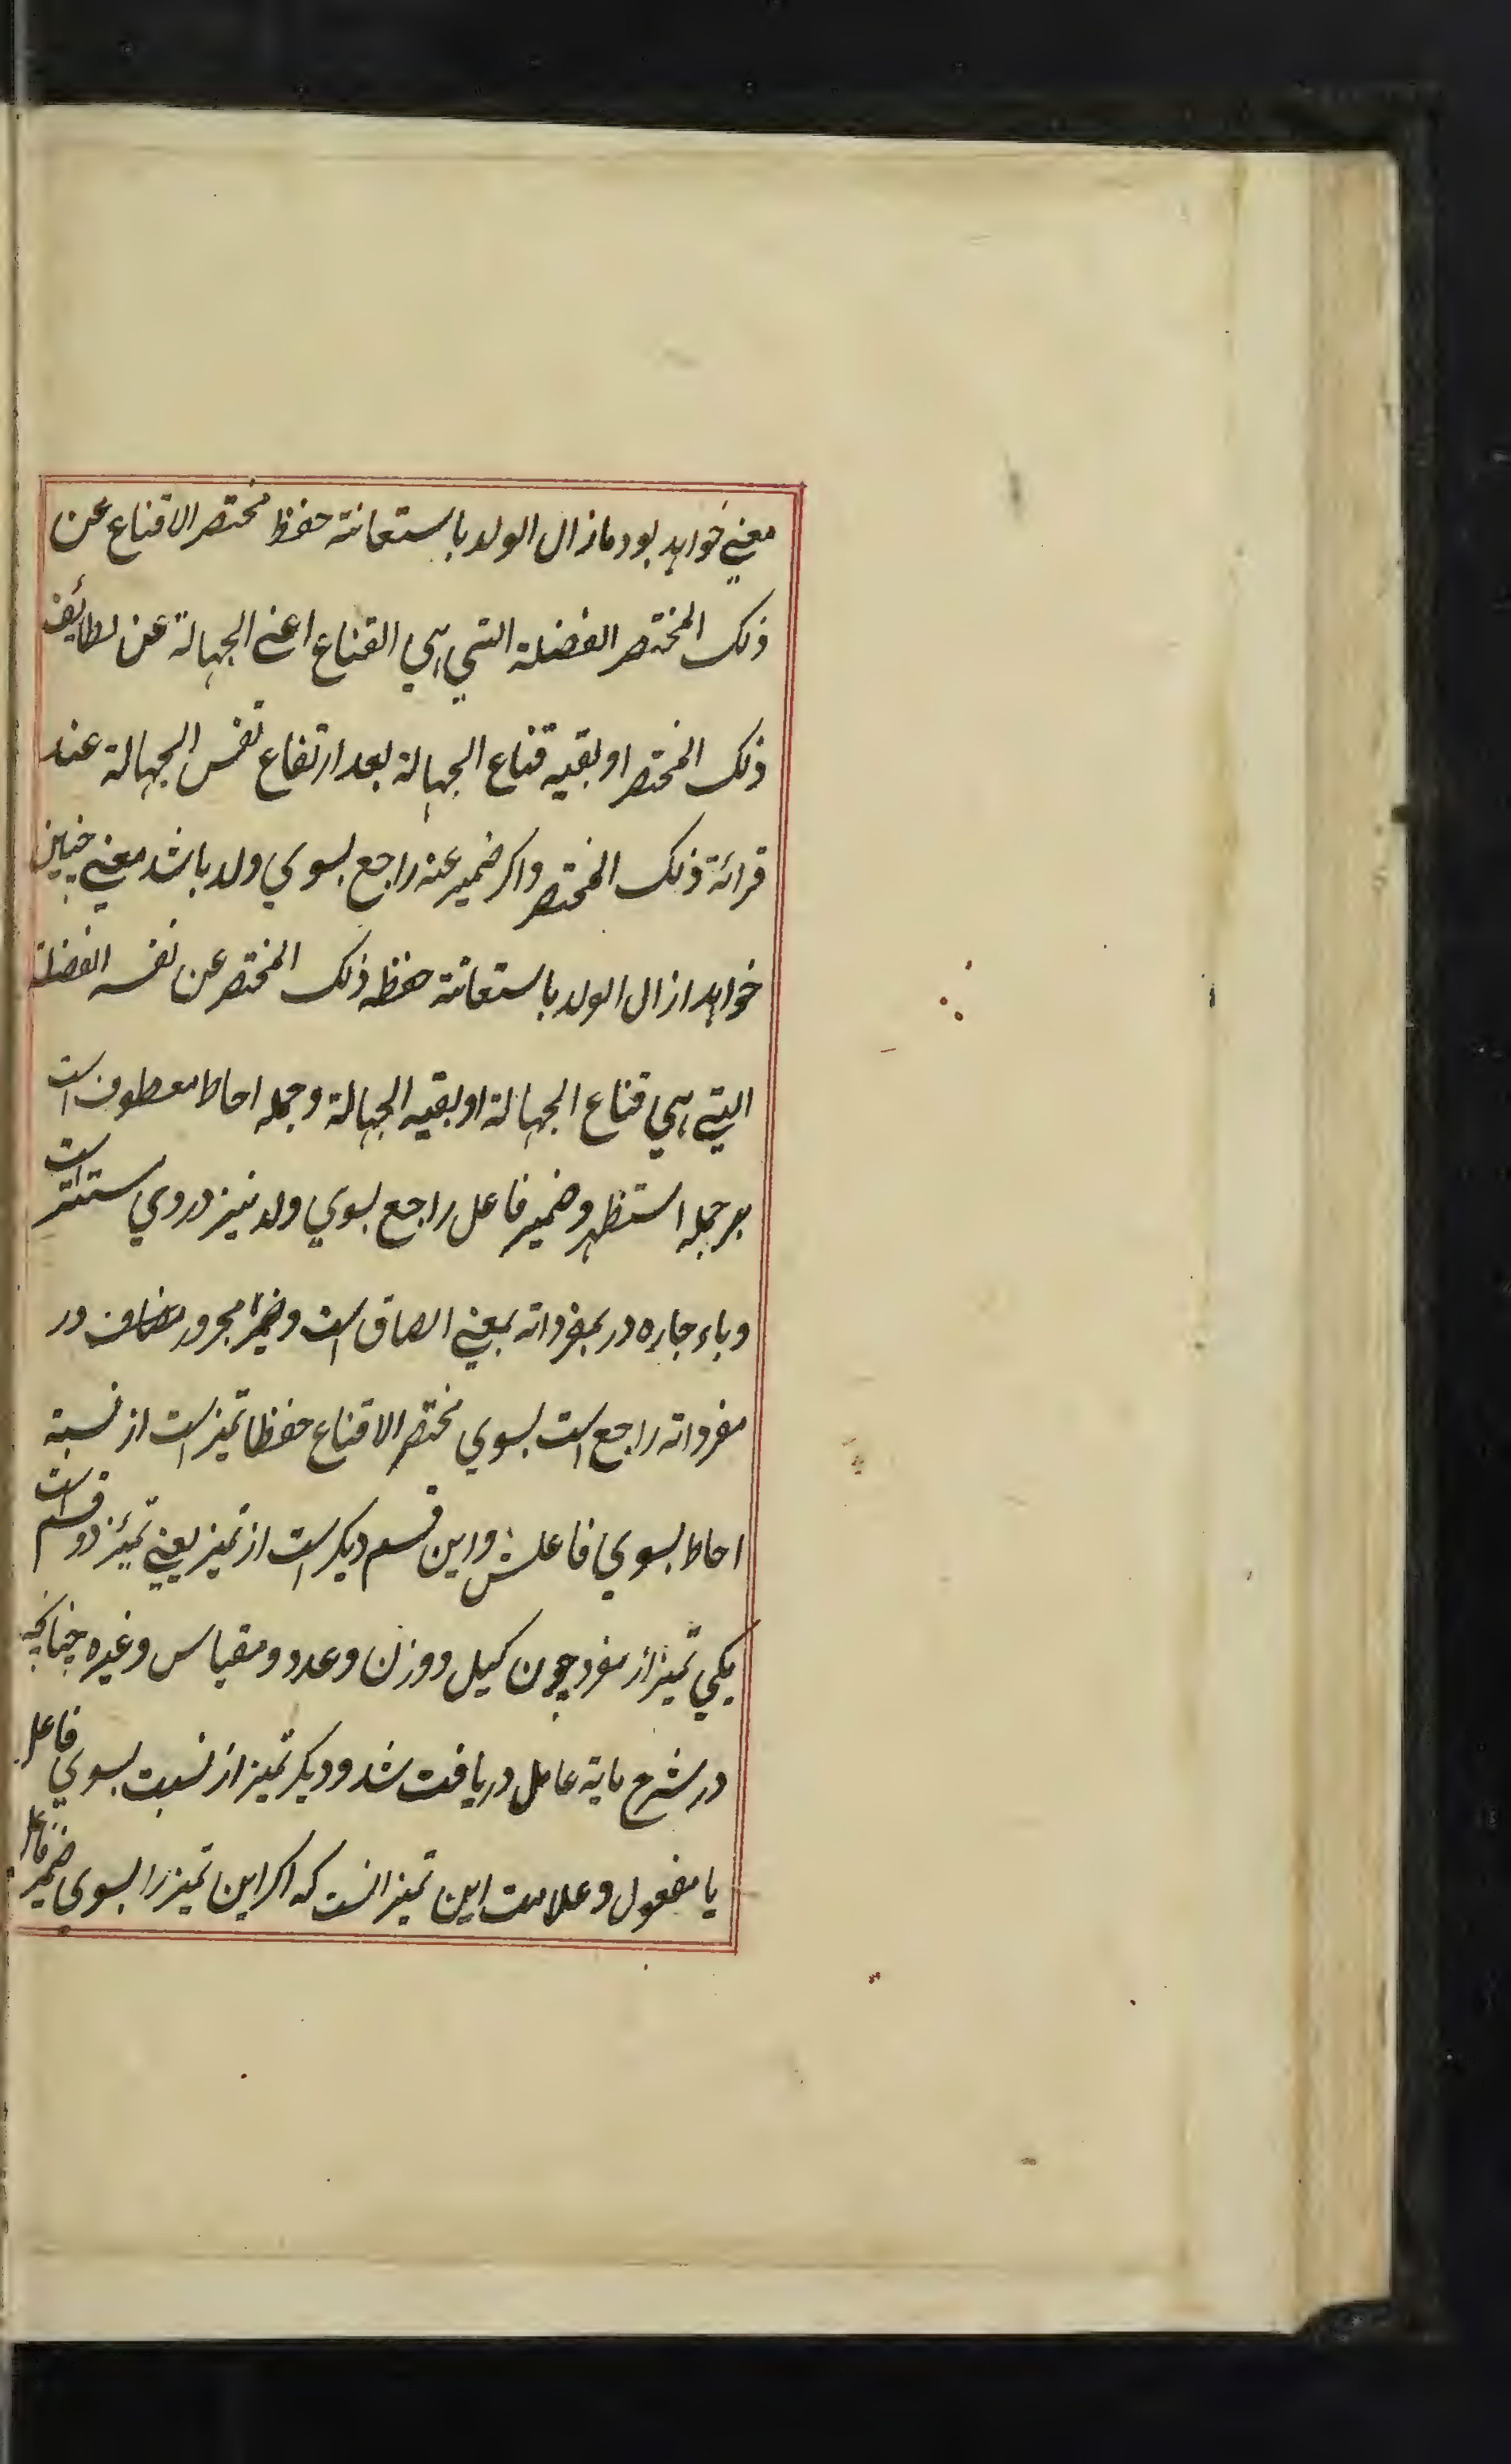 معني خواهد بود مازال الولد باستعانة حفظ مختصر الاقناع عن
ذلك المختصر الفضلة التي هي القناع اعني الجهالة عن لطائف
ذلك المختصر او بقيه قناع الجهالة بعد ارتفاع نفس الجهالة عند
قرائة ذلك المختصر واكر ضمير عنه راجع بسوي ولد باشد معني چنين
خواهد ازال الولد باستعانة حفظه ذلك المختصر عن نفسه الفضلة
التي هي قناع الجهالة او بقيه الجهالة وجمله احاط معطوف است
بر جمله استظهر وضمير فاعل راجع بسوي ولد نيز در وي مستتر است
وباء جاره در بمفرداته بمعني الصاق است وضمير مجرور مضاف در
مفرداته راجع است بسوي مختصر الاقناع حفظا تميز است از نسبة
احاط بسوي فاعلش واين قسم ديكر است از تميز يعني تميز دو قسم است
يكي تميز از مفرد چون كيل ووزن وعدد ومقياس وغيره چنانچه
در شرح ماية عامل دريافت شد وديكر تميز از نسبت بسوي فاعل
يا مفعول وعلامت اين تميز انست كه اكر اين تميز را بسوي ضمير فاعل